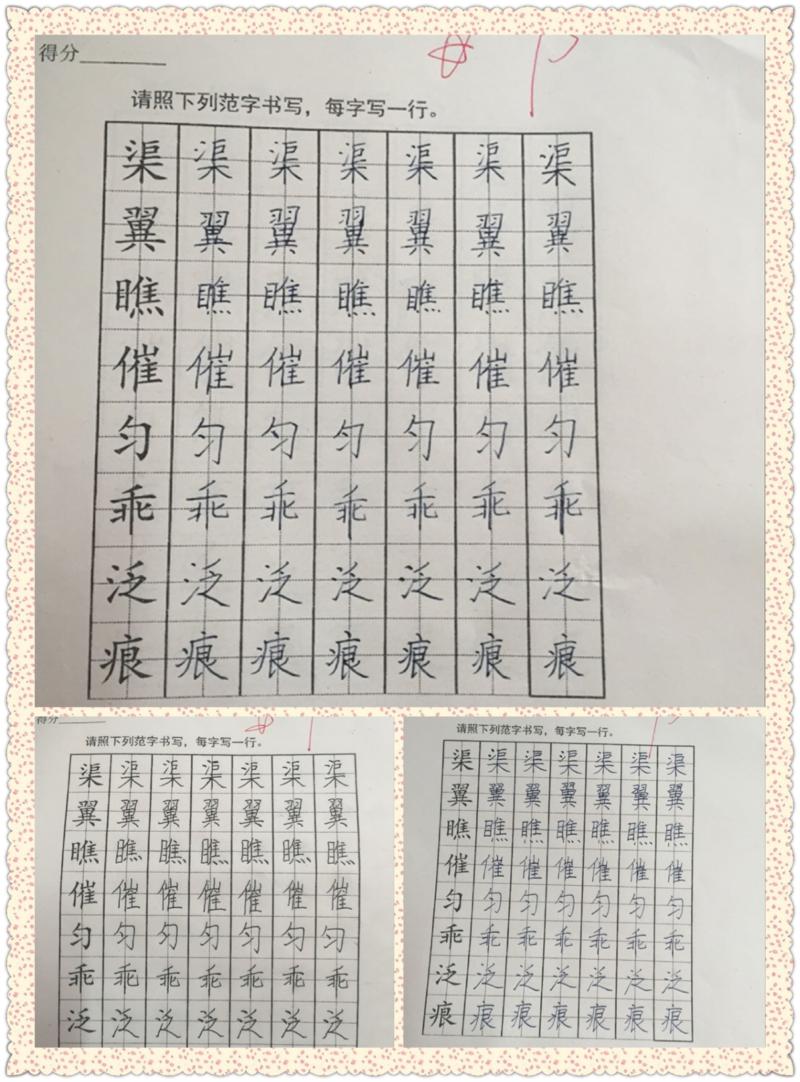 得分
请照下列范字书写，每字写一行。
渠 渠 渠 渠 渠 渠 渠
翼 翼 翼 翼 翼 翼 翼
瞧 瞧 瞧 瞧 瞧 瞧 瞧
催 催 催 催 催 催 催
匀 匀 匀 匀 匀 匀 匀
乖 乖 乖 乖 乖 乖 乖
泛 泛 泛 泛 泛 泛 泛
痕 痕 痕 痕 痕 痕 痕
得分
请照下列范字书写，每字写一行。
渠 渠 渠 渠 渠 渠 渠
翼 翼 翼 翼 翼 翼 翼
瞧 瞧 瞧 瞧 瞧 瞧 瞧
催 催 催 催 催 催 催
匀 匀 匀 匀 匀 匀 匀
乖 乖 乖 乖 乖 乖 乖
泛 泛 泛 泛 泛 泛 泛
请照下列范字书写，每字写一行。
渠 渠 渠 渠 渠 渠 渠
翼 翼 翼 翼 翼 翼 翼
瞧 瞧 瞧 瞧 瞧 瞧 瞧
催 催 催 催 催 催 催
匀 匀 匀 匀 匀 匀 匀
乖 乖 乖 乖 乖 乖 乖
泛 泛 泛 泛 泛 泛 泛
痕 痕 痕 痕 痕 痕 痕